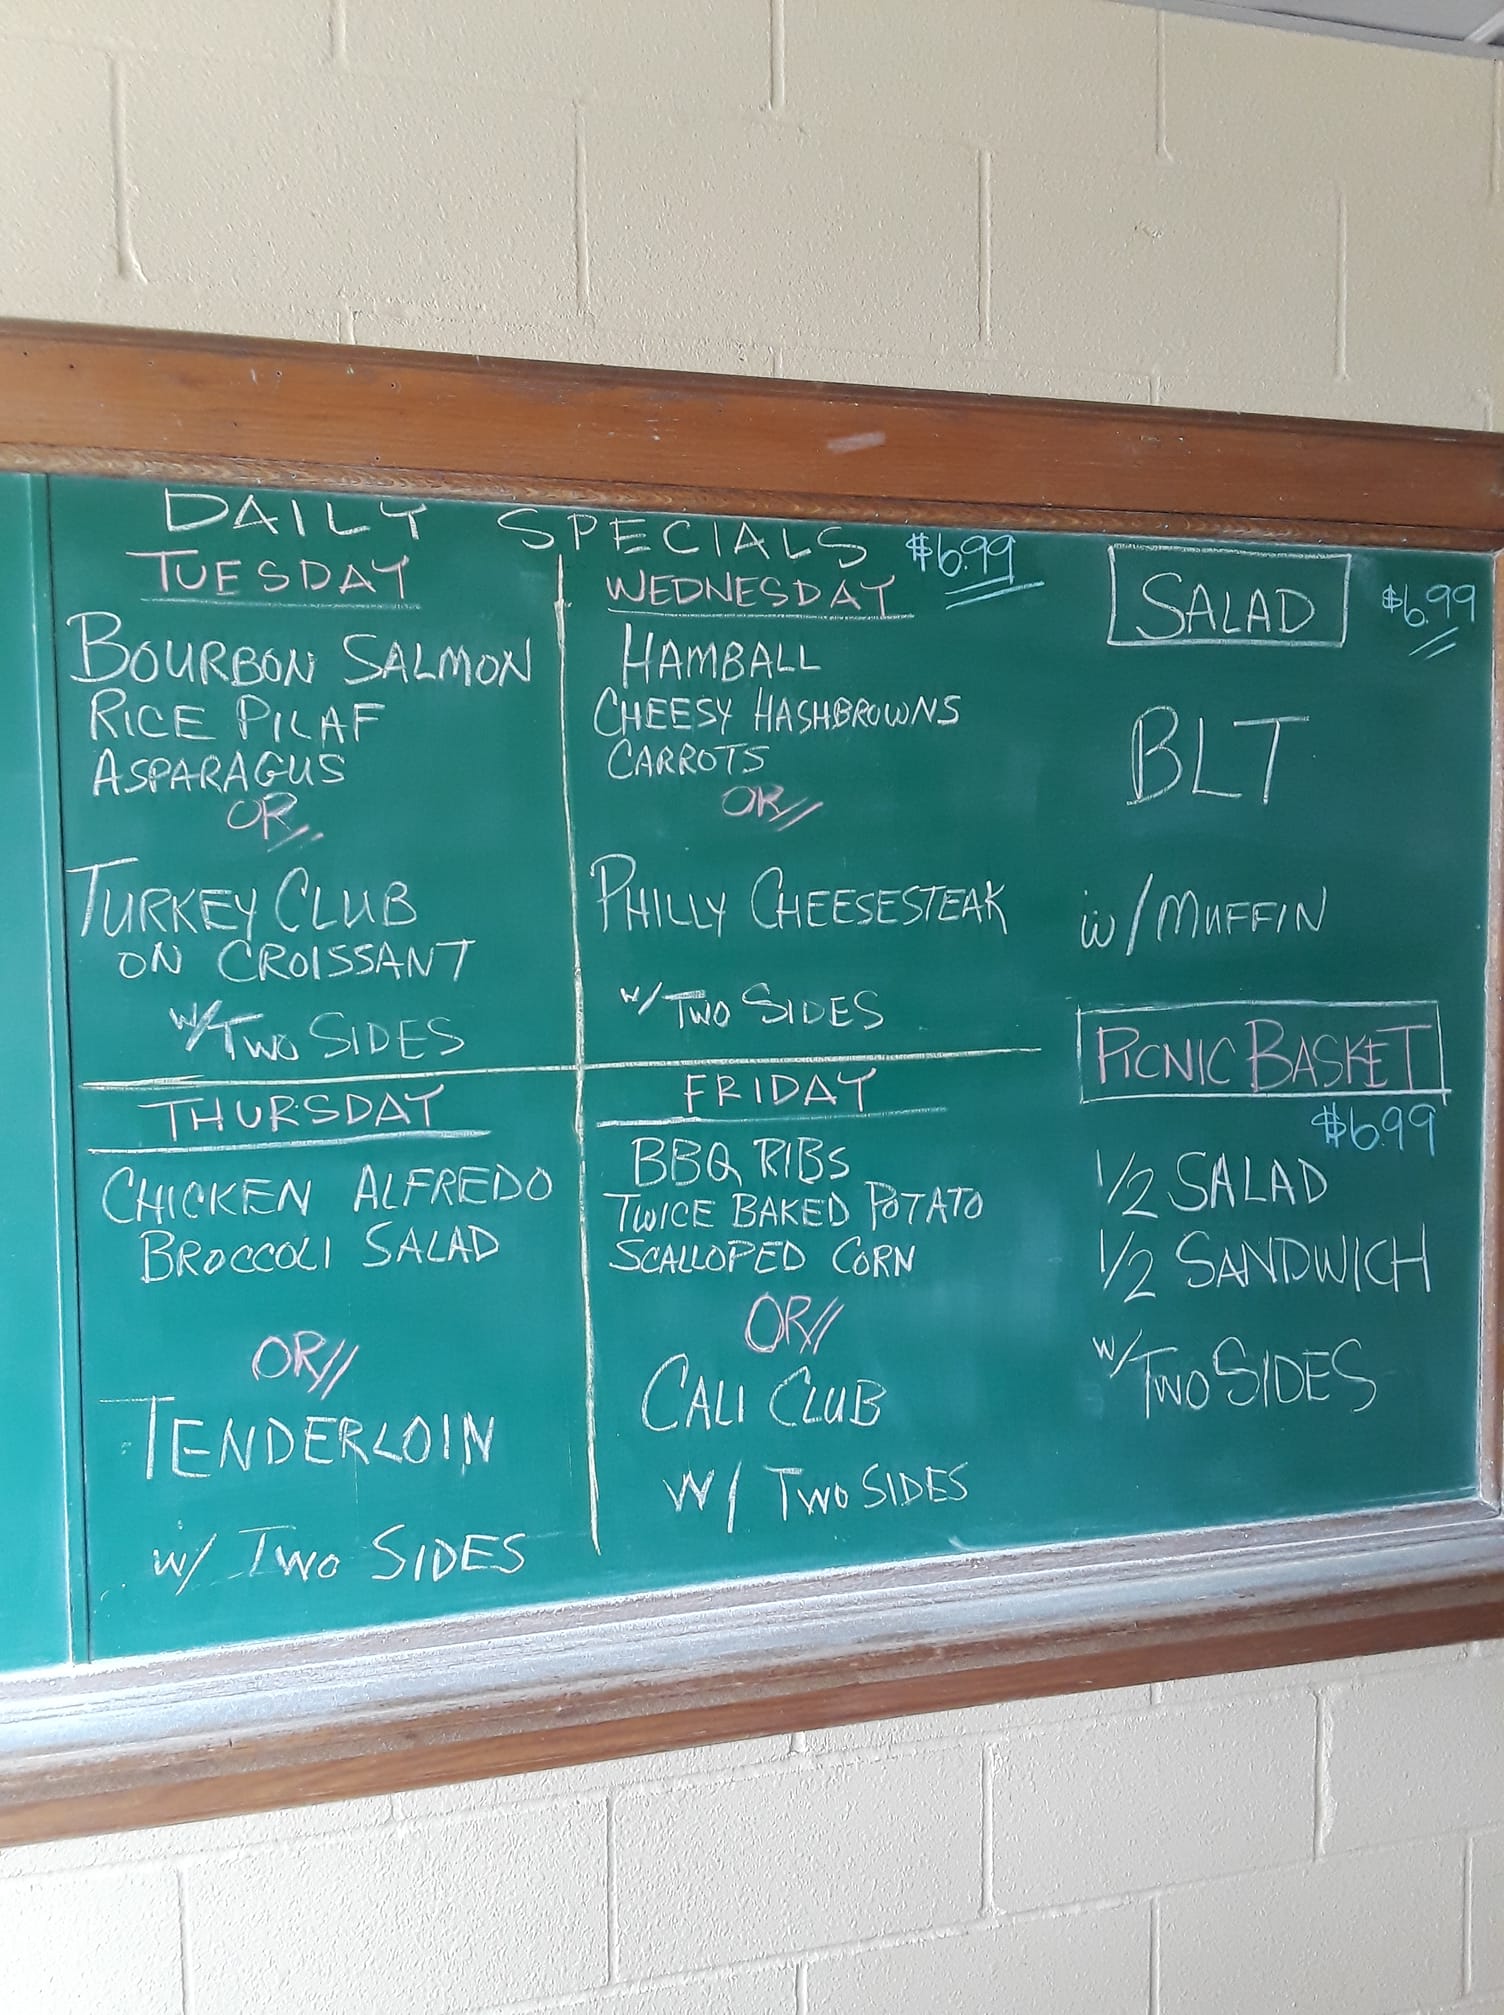 DAILY SPECIALS $6.99
TUESDAY
BOURBON SALMON
RICE PILAF
ASPARAGUS
OR
TURKEY CLUB
ON CROISSANT
W/TWO SIDES
WEDNESDAY
HAMBALL
CHEESY HASHBROWNS
CARROTS
OR//
PHILLY CHEESESTEAK
W/TWO SIDES
THURSDAY
CHICKEN ALFREDO
BROCCOLI SALAD
OR//
TENDERLOIN
W/ TWO SIDES
FRIDAY
BBQ RIBS
TWICE BAKED POTATO
SCALLOPED CORN
OR//
CALI CLUB
W/ TWO SIDES
SALAD $6.99
BLT
W/MUFFIN
PICNIC BASKET
$6.99
1/2 SALAD
1/2 SANDWICH
W/TWO SIDES